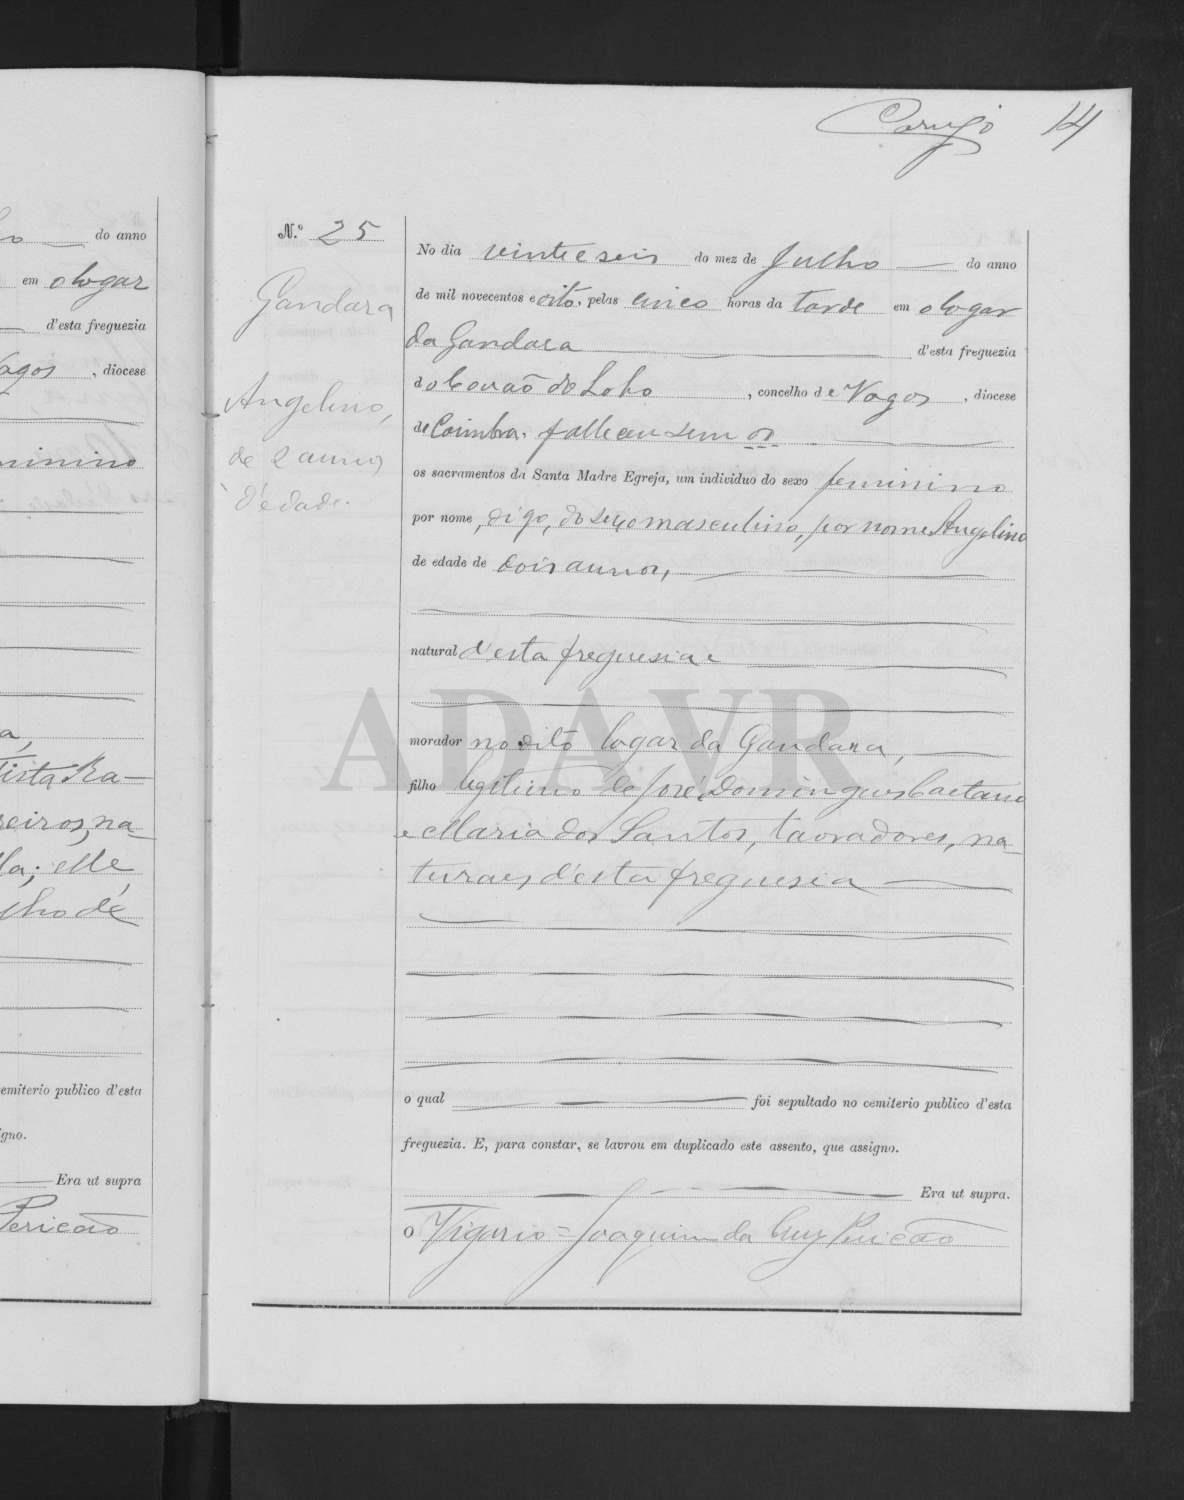 Carujo 14
o do anno
em o logar
d'esta freguezia
Vagos, diocese
minino
a,
tista Ra-
reiros, na-
la; elle,
lho de
emiterio publico d'esta
igno.
Era ut supra
Pericão
N.º 25
Gandara
Angelino,
de 2 annos
d'edade.
No dia vinte e seis do mez de Julho do anno
de mil novecentos e oito, pelas cinco horas da tarde em o logar
da Gandara d'esta freguezia
do Covão do Lobo, concelho de Vagos, diocese
de Coimbra, falleceu sem os
os sacramentos da Santa Madre Egreja, um individuo do sexo feminino
por nome, digo, do sexo masculino, por nome Angelino
de edade de dois annos,
natural d'esta freguesia e
morador no dito logar da Gandara,
filho legitimo de José Domingues Caetano
e Maria dos Santos, lavradores, na-
turaes d'esta freguesia
o qual foi sepultado no cemiterio publico d'esta
freguezia. E, para constar, se lavrou em duplicado este assento, que assigno.
Era ut supra.
O Vigario = Joaquim da Cruz Pericão
ADAVR